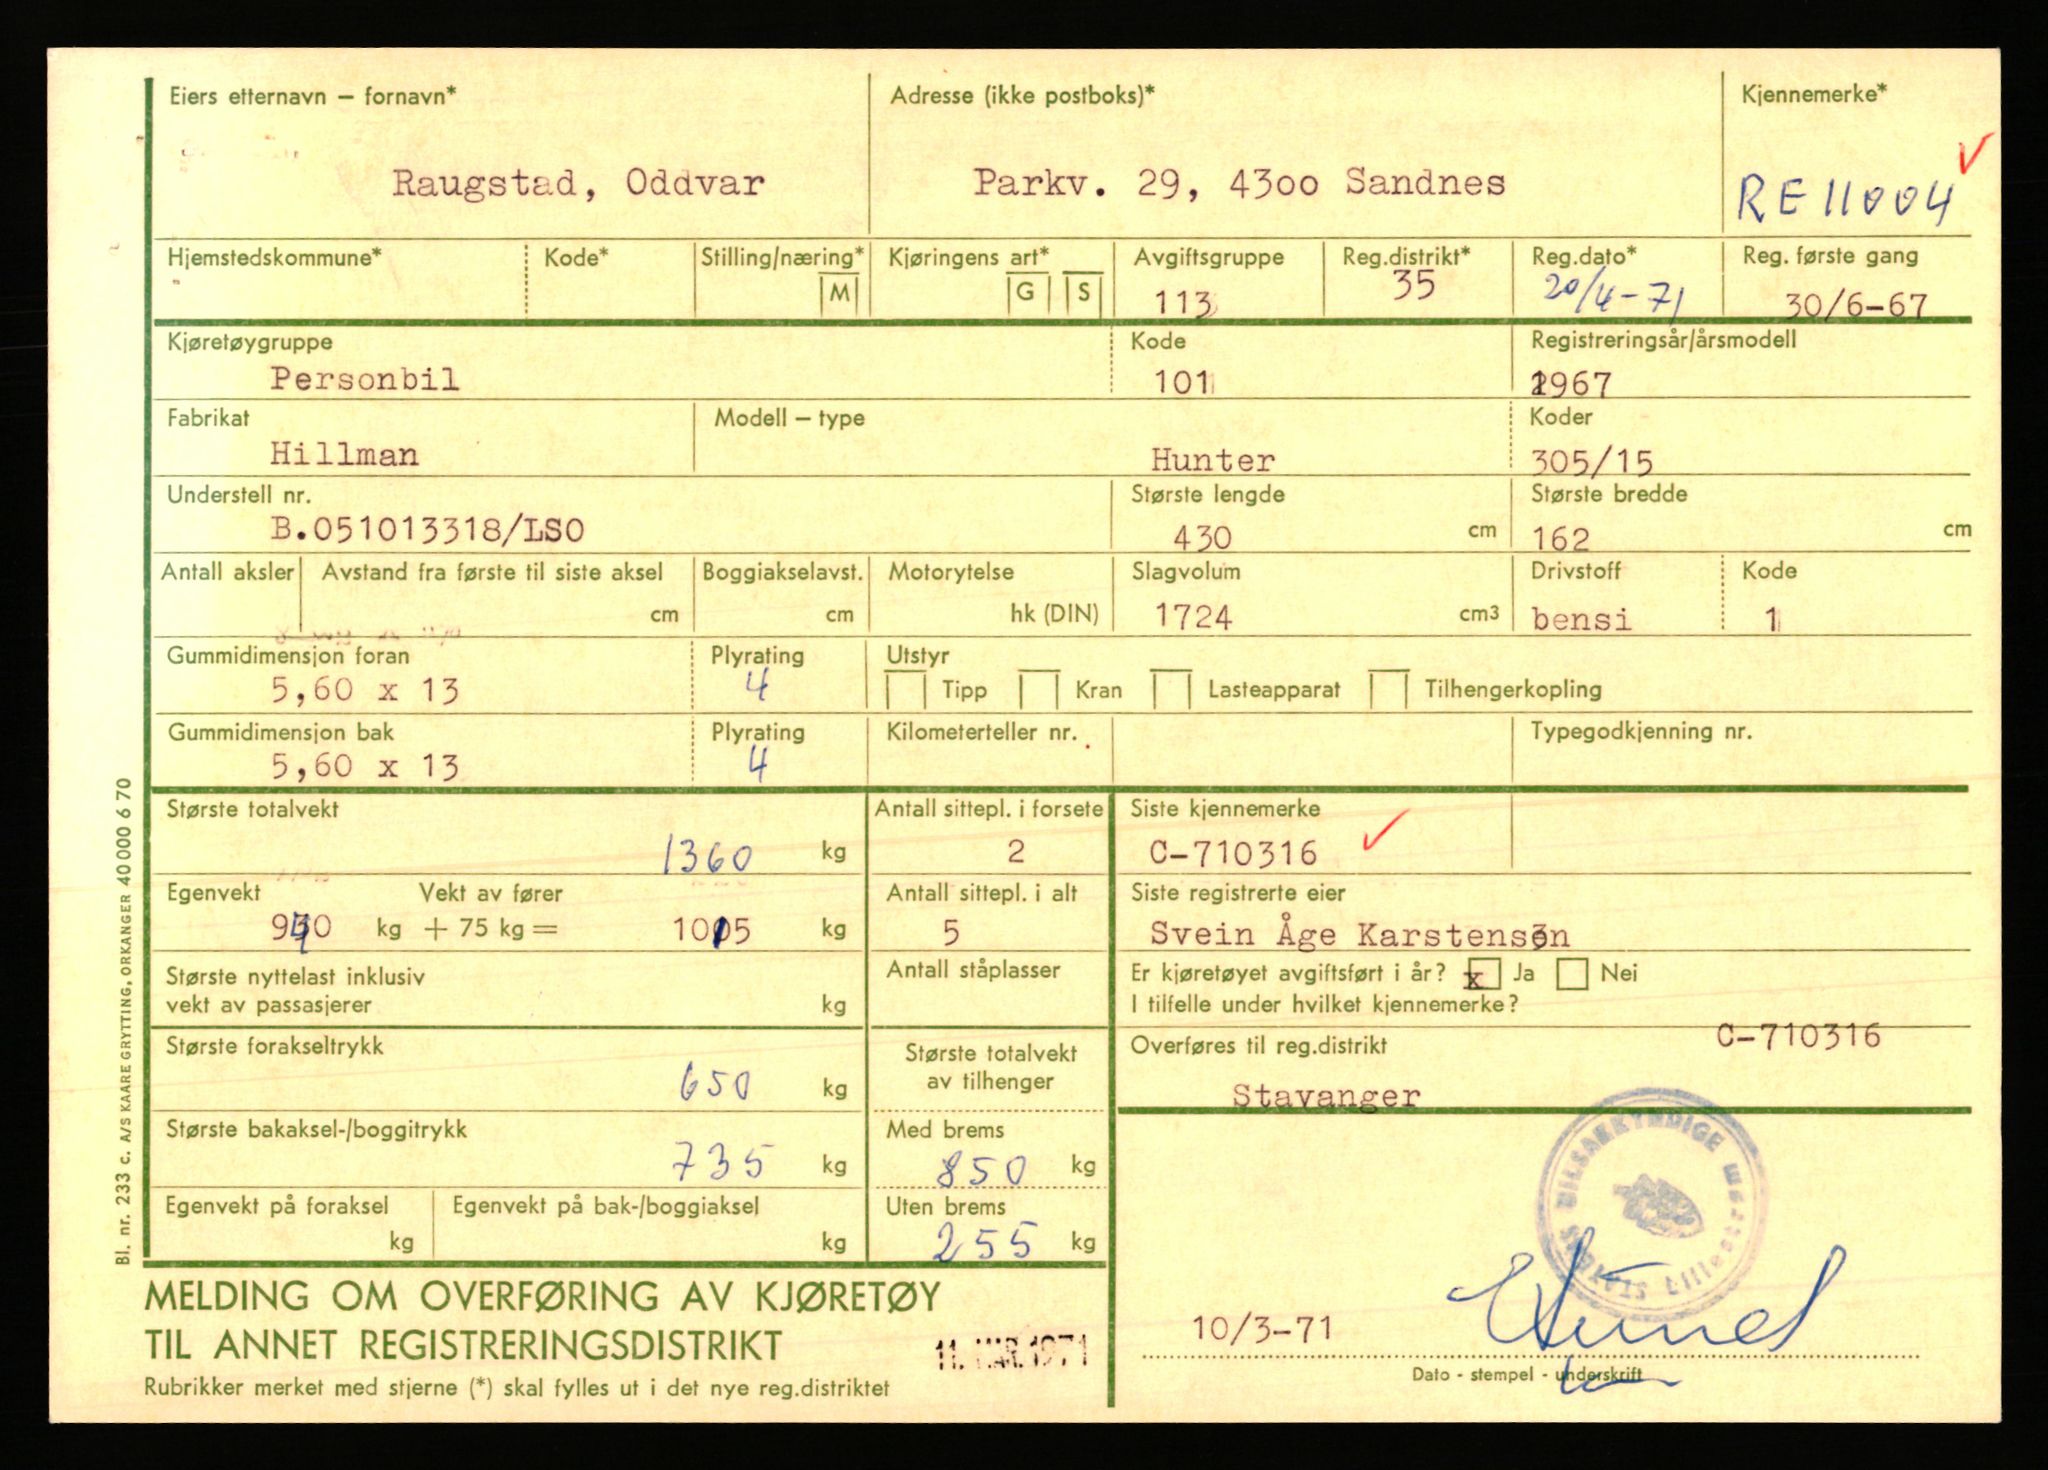 Eiers etternavn – fornavn* Adresse (ikke postboks)* Kjennemerke*
Raugstad, Oddvar Parkv. 29, 4300 Sandnes RE 11004
Hjemstedskommune* Kode* Stilling/næring* Kjøringens art* Avgiftsgruppe Reg.distrikt* Reg.dato* Reg. første gang
M G S 113 35 20/4-71 30/6-67
Kjøretøygruppe Kode Registreringsår/årsmodell
Personbil 101 1967
Fabrikat Modell – type Koder
Hillman Hunter 305/15
Understell nr. Største lengde Største bredde
B.051013318/LSO 430 cm 162 cm
Antall aksler Avstand fra første til siste aksel Boggiakselavst. Motorytelse Slagvolum Drivstoff Kode
cm cm hk (DIN) 1724 cm3 bensi 1
Gummidimensjon foran Plyrating Utstyr
5,60 x 13 4 Tipp Kran Lasteapparat Tilhengerkopling
Gummidimensjon bak Plyrating Kilometerteller nr. Typegodkjenning nr.
5,60 x 13 4
Største totalvekt Antall sittepl. i forsete Siste kjennemerke
1360 kg 2 C-710316
Egenvekt Vekt av fører Antall sittepl. i alt Siste registrerte eier
940 kg + 75 kg = 1015 kg 5 Svein Åge Karstensen
Største nyttelast inklusiv Antall ståplasser Er kjøretøyet avgiftsført i år? x Ja Nei
vekt av passasjerer kg I tilfelle under hvilket kjennemerke?
C-710316
Største forakseltrykk Største totalvekt Overføres til reg.distrikt
650 kg av tilhenger Stavanger
Største bakaksel-/boggitrykk Med brems
735 kg 850 kg
Egenvekt på foraksel Egenvekt på bak-/boggiaksel Uten brems
kg kg 255 kg
STATENS BILSAKKYNDIGE Lillestrøm
MELDING OM OVERFØRING AV KJØRETØY
TIL ANNET REGISTRERINGSDISTRIKT 11. MAR. 1971 10/3-71
Rubrikker merket med stjerne (*) skal fylles ut i det nye reg.distriktet Dato - stempel - underskrift
Bl. nr. 233 c. A/S KAARE GRYTTING, ORKANGER 40 000 6 70